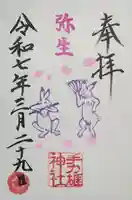 奉拝
弥生
令和七年三月二十九日
手力雄
神社